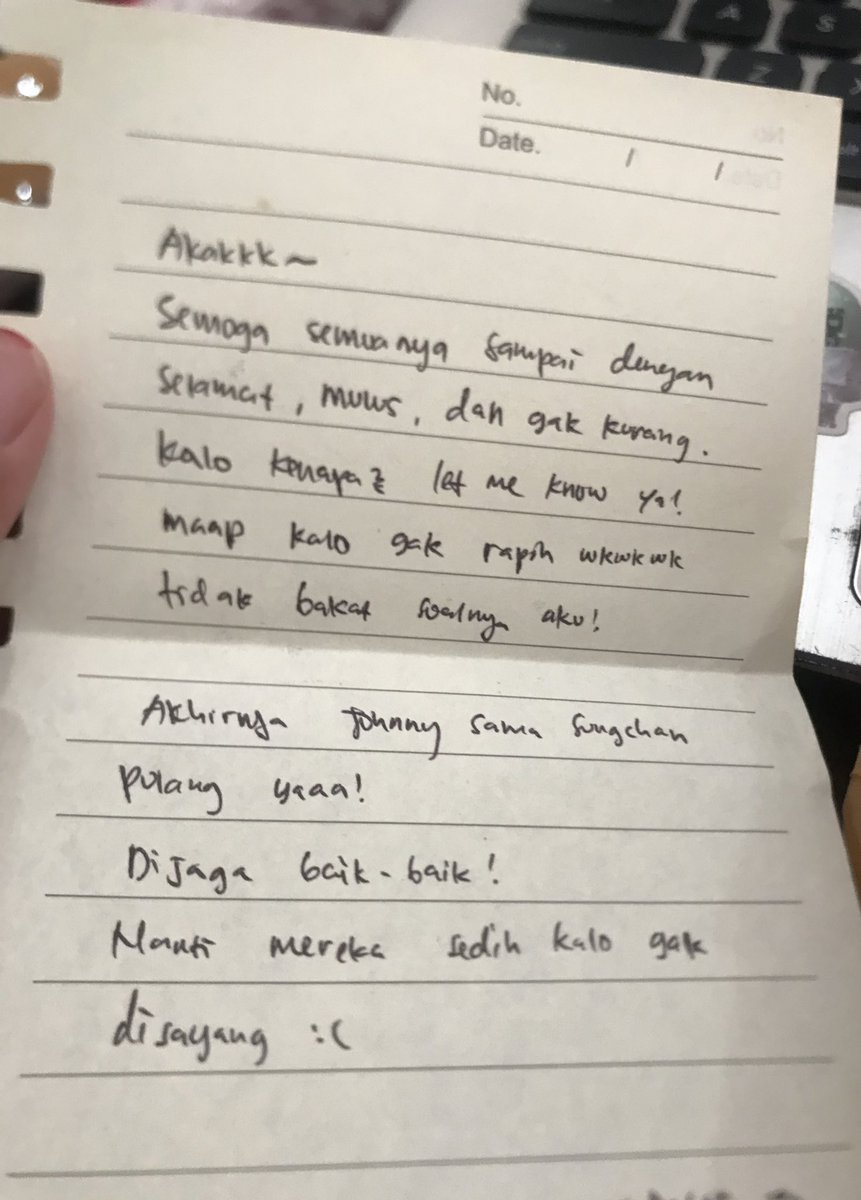 No.
Date. / /
Akakkk~
Semoga semuanya sampai dengan
selamat, mulus, dan gak kurang.
kalo kenapa2 let me know ya!
maap kalo gak rapih wkwkwk
tidak bakat soalnya aku!
Akhirnya Johnny sama Sungchan
pulang yaaa!
Dijaga baik-baik!
Nanti mereka sedih kalo gak
disayang :(